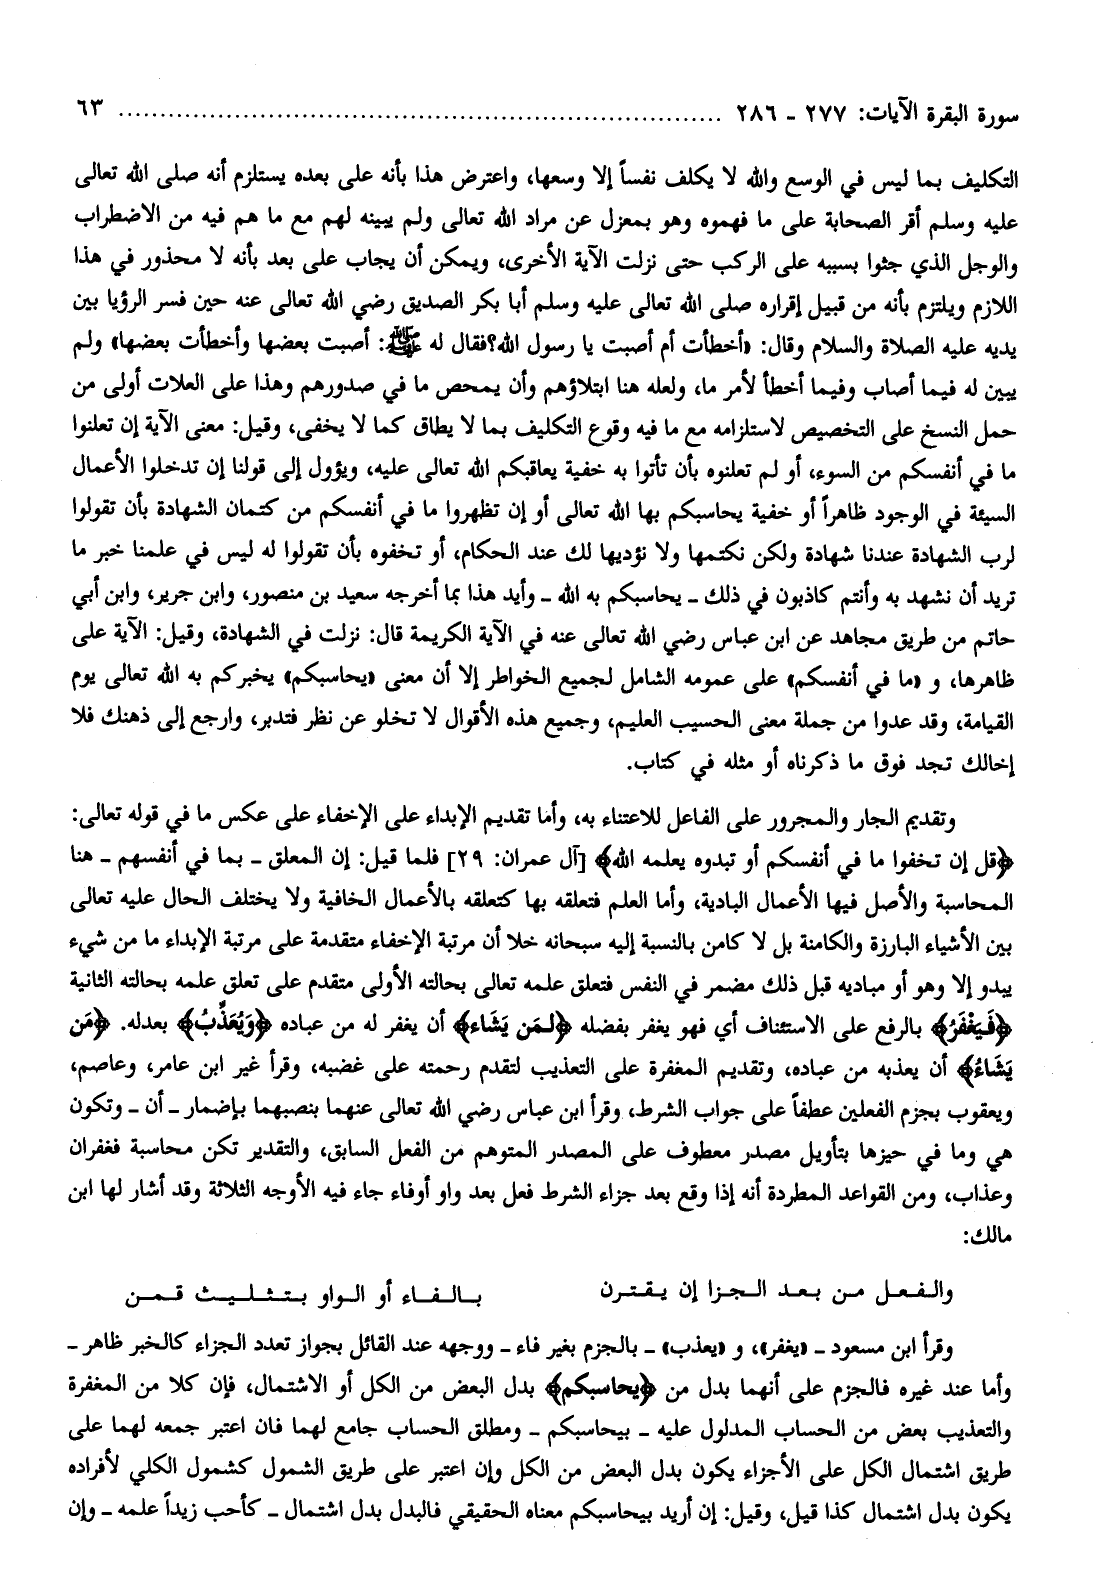 سورة البقرة الآيات: ٢٧٧ ـ ٢٨٦ ........................................................................ ٦٣
التكليف بما ليس في الوسع والله لا يكلف نفساً إلا وسعها، واعترض هذا بأنه على بعده يستلزم أنه صلى الله تعالى
عليه وسلم أقر الصحابة على ما فهموه وهو بمعزل عن مراد الله تعالى ولم يبينه لهم مع ما هم فيه من الاضطراب
والوجل الذي جثوا بسببه على الركب حتى نزلت الآية الأخرى، ويمكن أن يجاب على بعد بأنه لا محذور في هذا
اللازم ويلتزم بأنه من قبيل إقراره صلى الله تعالى عليه وسلم أبا بكر الصديق رضي الله تعالى عنه حين فسر الرؤيا بين
يديه عليه الصلاة والسلام وقال: «أخطأت أم أصبت يا رسول الله؟فقال له ﷺ: أصبت بعضها وأخطأت بعضها» ولم
يبين له فيما أصاب وفيما أخطأ لأمر ما، ولعله هنا ابتلاؤهم وأن يمحص ما في صدورهم وهذا على العلات أولى من
حمل النسخ على التخصيص لاستلزامه مع ما فيه وقوع التكليف بما لا يطاق كما لا يخفى، وقيل: معنى الآية إن تعلنوا
ما في أنفسكم من السوء، أو لم تعلنوه بأن تأتوا به خفية يعاقبكم الله تعالى عليه، ويؤول إلى قولنا إن تدخلوا الأعمال
السيئة في الوجود ظاهراً أو خفية يحاسبكم بها الله تعالى أو إن تظهروا ما في أنفسكم من كتمان الشهادة بأن تقولوا
لرب الشهادة عندنا شهادة ولكن نكتمها ولا نؤديها لك عند الحكام، أو تخفوه بأن تقولوا له ليس في علمنا خبر ما
تريد أن نشهد به وأنتم كاذبون في ذلك ـ يحاسبكم به الله ـ وأيد هذا بما أخرجه سعيد بن منصور، وابن جرير، وابن أبي
حاتم من طريق مجاهد عن ابن عباس رضي الله تعالى عنه في الآية الكريمة قال: نزلت في الشهادة، وقيل: الآية على
ظاهرها، و «ما في أنفسكم» على عمومه الشامل لجميع الخواطر إلا أن معنى «يحاسبكم» يخبركم به الله تعالى يوم
القيامة، وقد عدوا من جملة معنى الحسيب العليم، وجميع هذه الأقوال لا تخلو عن نظر فتدبر، وارجع إلى ذهنك فلا
إخالك تجد فوق ما ذكرناه أو مثله في كتاب.
وتقديم الجار والمجرور على الفاعل للاعتناء به، وأما تقديم الإبداء على الإخفاء على عكس ما في قوله تعالى:
﴿قل إن تخفوا ما في أنفسكم أو تبدوه يعلمه الله﴾ [آل عمران: ٢٩] فلما قيل: إن المعلق ـ بما في أنفسهم ـ هنا
المحاسبة والأصل فيها الأعمال البادية، وأما العلم فتعلقه بها كتعلقه بالأعمال الخافية ولا يختلف الحال عليه تعالى
بين الأشياء البارزة والكامنة بل لا كامن بالنسبة إليه سبحانه خلا أن مرتبة الإخفاء متقدمة على مرتبة الإبداء ما من شيء
يبدو إلا وهو أو مباديه قبل ذلك مضمر في النفس فتعلق علمه تعالى بحالته الأولى متقدم على تعلق علمه بحالته الثانية
﴿فَيَغْفَرُ﴾ بالرفع على الاستئناف أي فهو يغفر بفضله ﴿لمَن يَشَاء﴾ أن يغفر له من عباده ﴿وَيُعَذِّبُ﴾ بعدله. ﴿مَن
يَشَاءُ﴾ أن يعذبه من عباده، وتقديم المغفرة على التعذيب لتقدم رحمته على غضبه، وقرأ غير ابن عامر، وعاصم،
ويعقوب بجزم الفعلين عطفاً على جواب الشرط، وقرأ ابن عباس رضي الله تعالى عنهما بنصبهما بإضمار ـ أن ـ وتكون
هي وما في حيزها بتأويل مصدر معطوف على المصدر المتوهم من الفعل السابق، والتقدير تكن محاسبة فغفران
وعذاب، ومن القواعد المطردة أنه إذا وقع بعد جزاء الشرط فعل بعد واو أوفاء جاء فيه الأوجه الثلاثة وقد أشار لها ابن
مالك:
والفعل من بعد الجزا إن يقترن بالفاء أو الواو بتثليث قمن
وقرأ ابن مسعود ـ «يغفر»، و «يعذب» ـ بالجزم بغير فاء ـ ووجهه عند القائل بجواز تعدد الجزاء كالخبر ظاهر ـ
وأما عند غيره فالجزم على أنهما بدل من ﴿يحاسبكم﴾ بدل البعض من الكل أو الاشتمال، فإن كلا من المغفرة
والتعذيب بعض من الحساب المدلول عليه ـ بيحاسبكم ـ ومطلق الحساب جامع لهما فان اعتبر جمعه لهما على
طريق اشتمال الكل على الأجزاء يكون بدل البعض من الكل وإن اعتبر على طريق الشمول كشمول الكلي لأفراده
يكون بدل اشتمال كذا قيل، وقيل: إن أريد بيحاسبكم معناه الحقيقي فالبدل بدل اشتمال ـ كأحب زيداً علمه ـ وإن